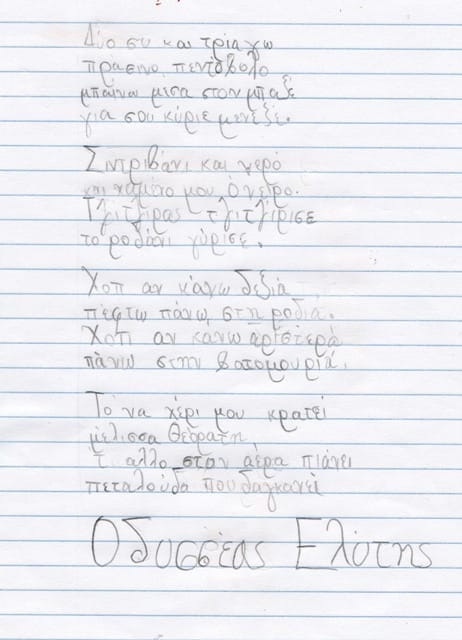 Δύο συ και τρία γω
πράσινο πεντόβολο
μπαίνω μέσα στον μπαξέ
γεια σου κύριε μενεξέ.
Σιντριβάνι και νερό
και χαμένο μου όνειρο.
Τζίτζιρας τζιτζίρισε
το ροδάνι γύρισε.
Χοπ αν κάνω δεξιά
πέφτω πάνω στη ροδιά.
Χοπ αν κάνω αριστερά
πάνω στην βατομουριά.
Το 'να χέρι μου κρατεί
μέλισσα θεόρατη
τ' άλλο στον αέρα πιάνει
πεταλούδα που δαγκάνει
Οδυσσέας Ελύτης